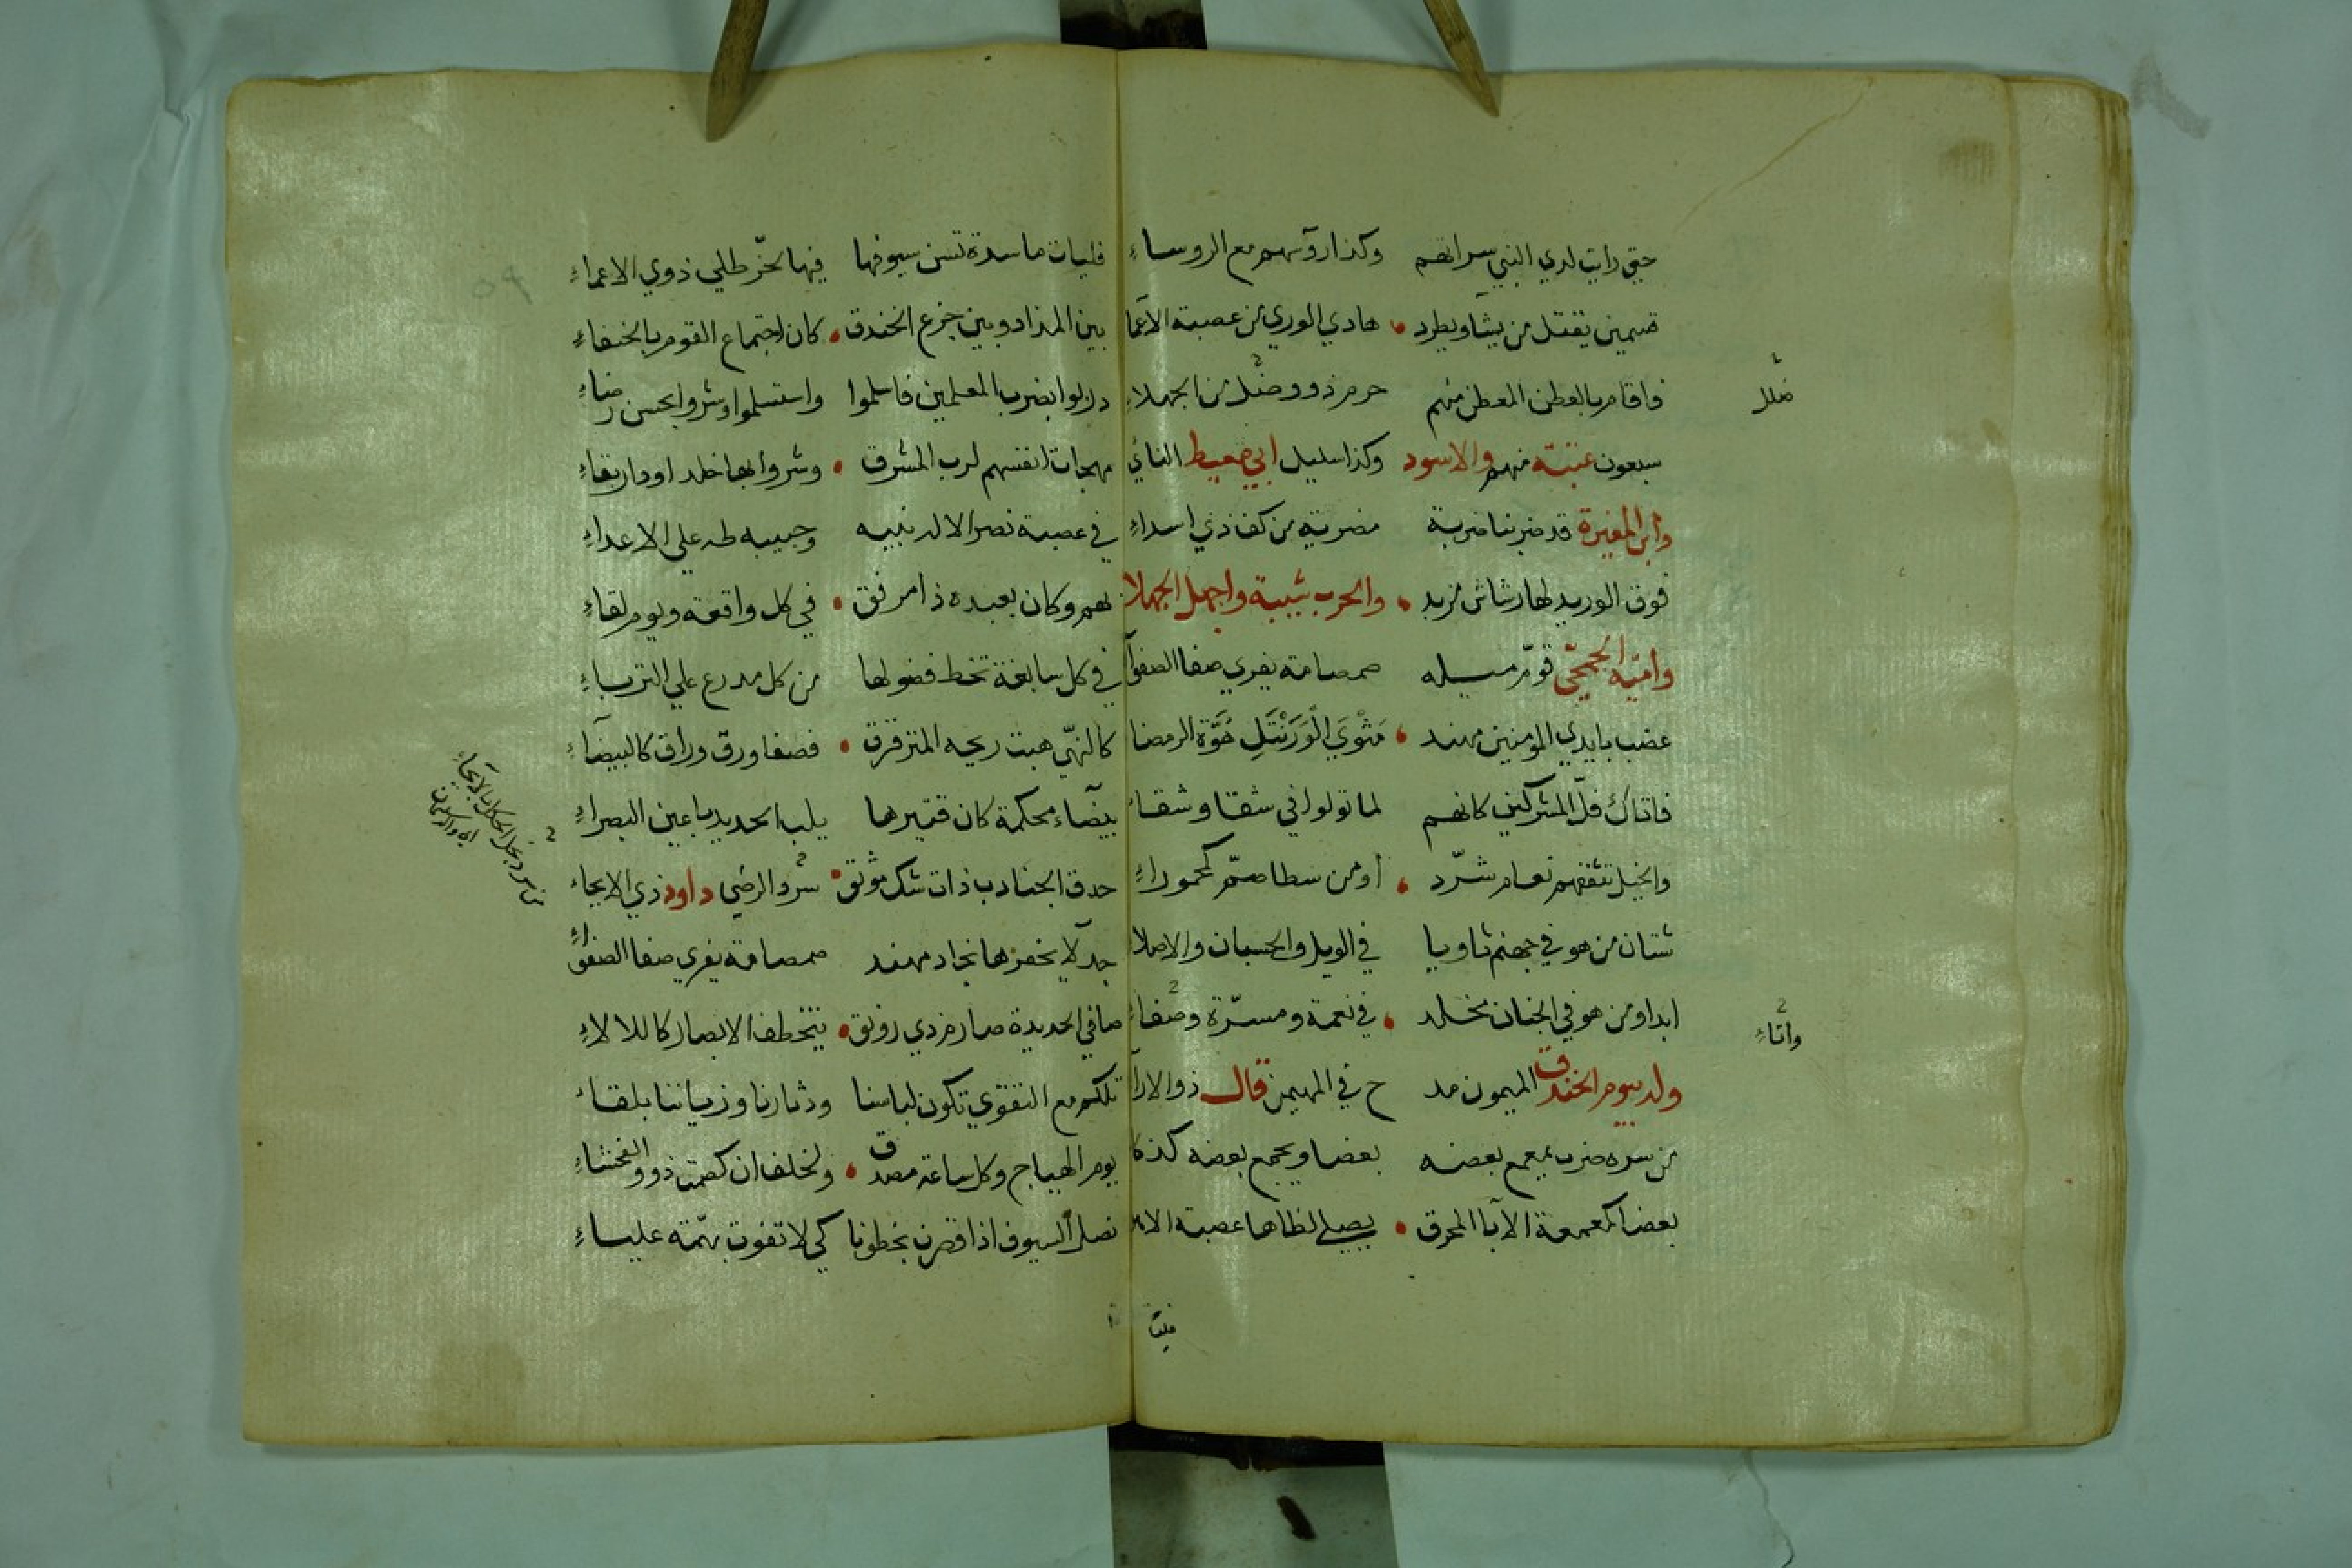 حتي رايت لدي النبي سراتهم وكذا رؤسهم مع الروساءِ
قسمين يقتل من يشا ويطرد هادي الوري من عصبة الآعما
فاقام بالعطن المعطن منهم حرم ذوو ضلل من الجهلاءِ
ضلل
سبعون عتبة منهم والاسود وكذا سليل ابي معيط النائي
وابن المغيرة قد ضربنا ضربة مضرية من كف ذي اسداءِ
فوق الوريد لها رشاش مزبد والحرب شيبة واجهل الجهلا
وامية الجمحي قوّم ميله صمصامة يفري صفا الصفوآ
عضب بايدي المومنين مهند مَثْوَي الْوَرَنْتَلِ هُوَّة الرمضا
فاتاك فلّ المشركين كانهم لما تولوا في شقا وشقاء
والخيل تثقفهم نعام شرّد أو من سطا صمّ كمحموراءِ
شتان من هو في جهنم ثاويا في الويل والحسبان والاصلا
ابدا ومن هو في الجنان مخلد في نعمة ومسرّة وصفاءِ
واتاءِ
وله بيوم الخندق الميمون مد ح في المهيمن قال ذوالارآ
من سره ضرب يمعمع بعضه بعضا ويجمع بعضه كذكا
بعضا كمعمعة الآبا المحرق يصلي لظاها عصبة الامر
فليات
فليات ماسدة تسن سيوفها فيها لحزّ طلي ذوي الاعماءِ
بين المذاد وبين جزع الخندق كان اجتماع القوم بالحنفاءِ
دربوا بضرب المعلمين فاسلموا واستسلموا وشروا بحسن رضاءِ
مهجات انفسهم لرب المشرق وشروا بها خلد اودار بقاءِ
في عصبة نصر الاله نبيه وحبيبه طه علي الاعداءِ
بهم وكان بعبده ذا مرفق في كل واقعة ويوم لقاءِ
في كل سابغة تخط فضولها من كل مدرع علي التربـاءِ
كالنهي هبت ريحه المترقرق فصفا ورق وراق كالبيضآءِ
بيضآء محكمة كان قتيرها يلب الحديد باعين البصراءِ
حدق الجنادب ذات شك موثق سرد الرضي داود ذي الايحاء
جدلآ يحفزها نجاد مهند صمصامة يفري صفا الصفواءِ
صافي الحديدة صارم ذي رونق يتخطف الابصار كاللالاءِ
تلكم مع التقوي تكون لباسنا ودثارنا وزياننا بلقاء
يوم الهياج وكل ساعة مصدق ولخلف ان كعمت ذوو الفحشاءِ
نصل السيوف اذا قصرن بخطونا كي لا تفوت بهمّة عليساءِ